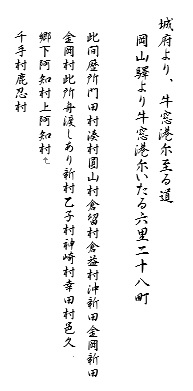 城府より、牛窓港尓至る道
岡山驛より牛窓港尓いたる六里二十八町
此间歴所門田村湊村圓山村倉留村倉益村沖新田金岡新田
金岡村此所舟渡しあり新村乙子村神崎村幸田村邑久
郷下阿知村上阿知村
千手村鹿忍村